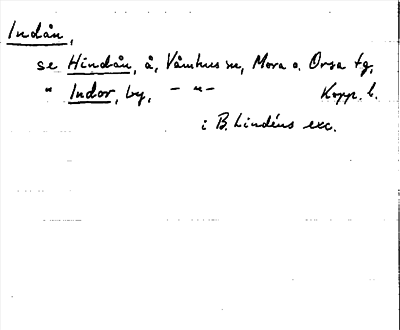 Indån,
se Hindån, å, Våmhus sn, Mora o. Orsa tg,
" Indor, by, — " — Kopp. l.
i B. Lindéns exc.